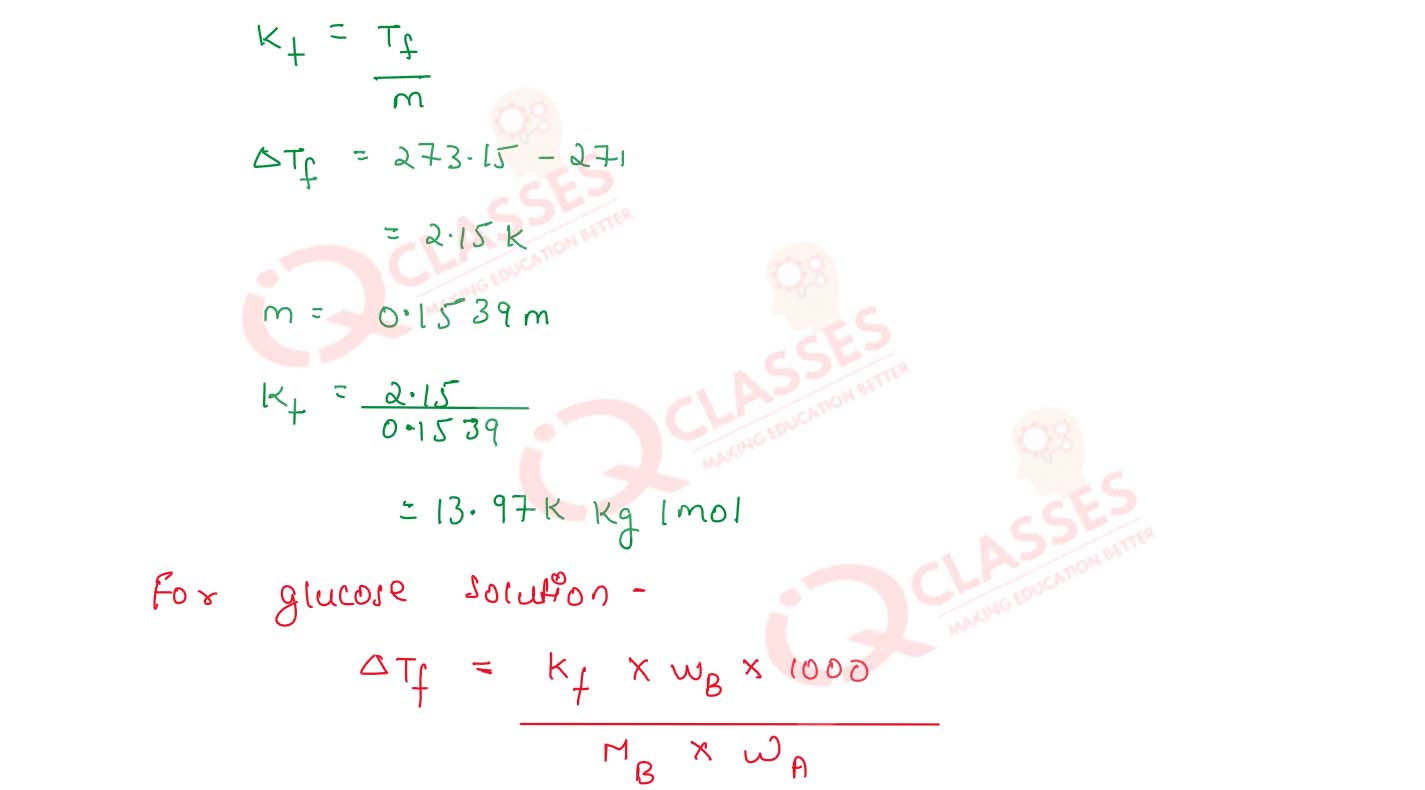 Kf = Tf
m
ΔTf = 273.15 - 271
= 2.15 K
m = 0.1539 m
Kf = 2.15
0.1539
= 13.97 K Kg / mol
For glucose solution -
ΔTf = Kf × WB × 1000
MB × WA
IQ CLASSES
MAKING EDUCATION BETTER
IQ CLASSES
MAKING EDUCATION BETTER
IQ CLASSES
MAKING EDUCATION BETTER